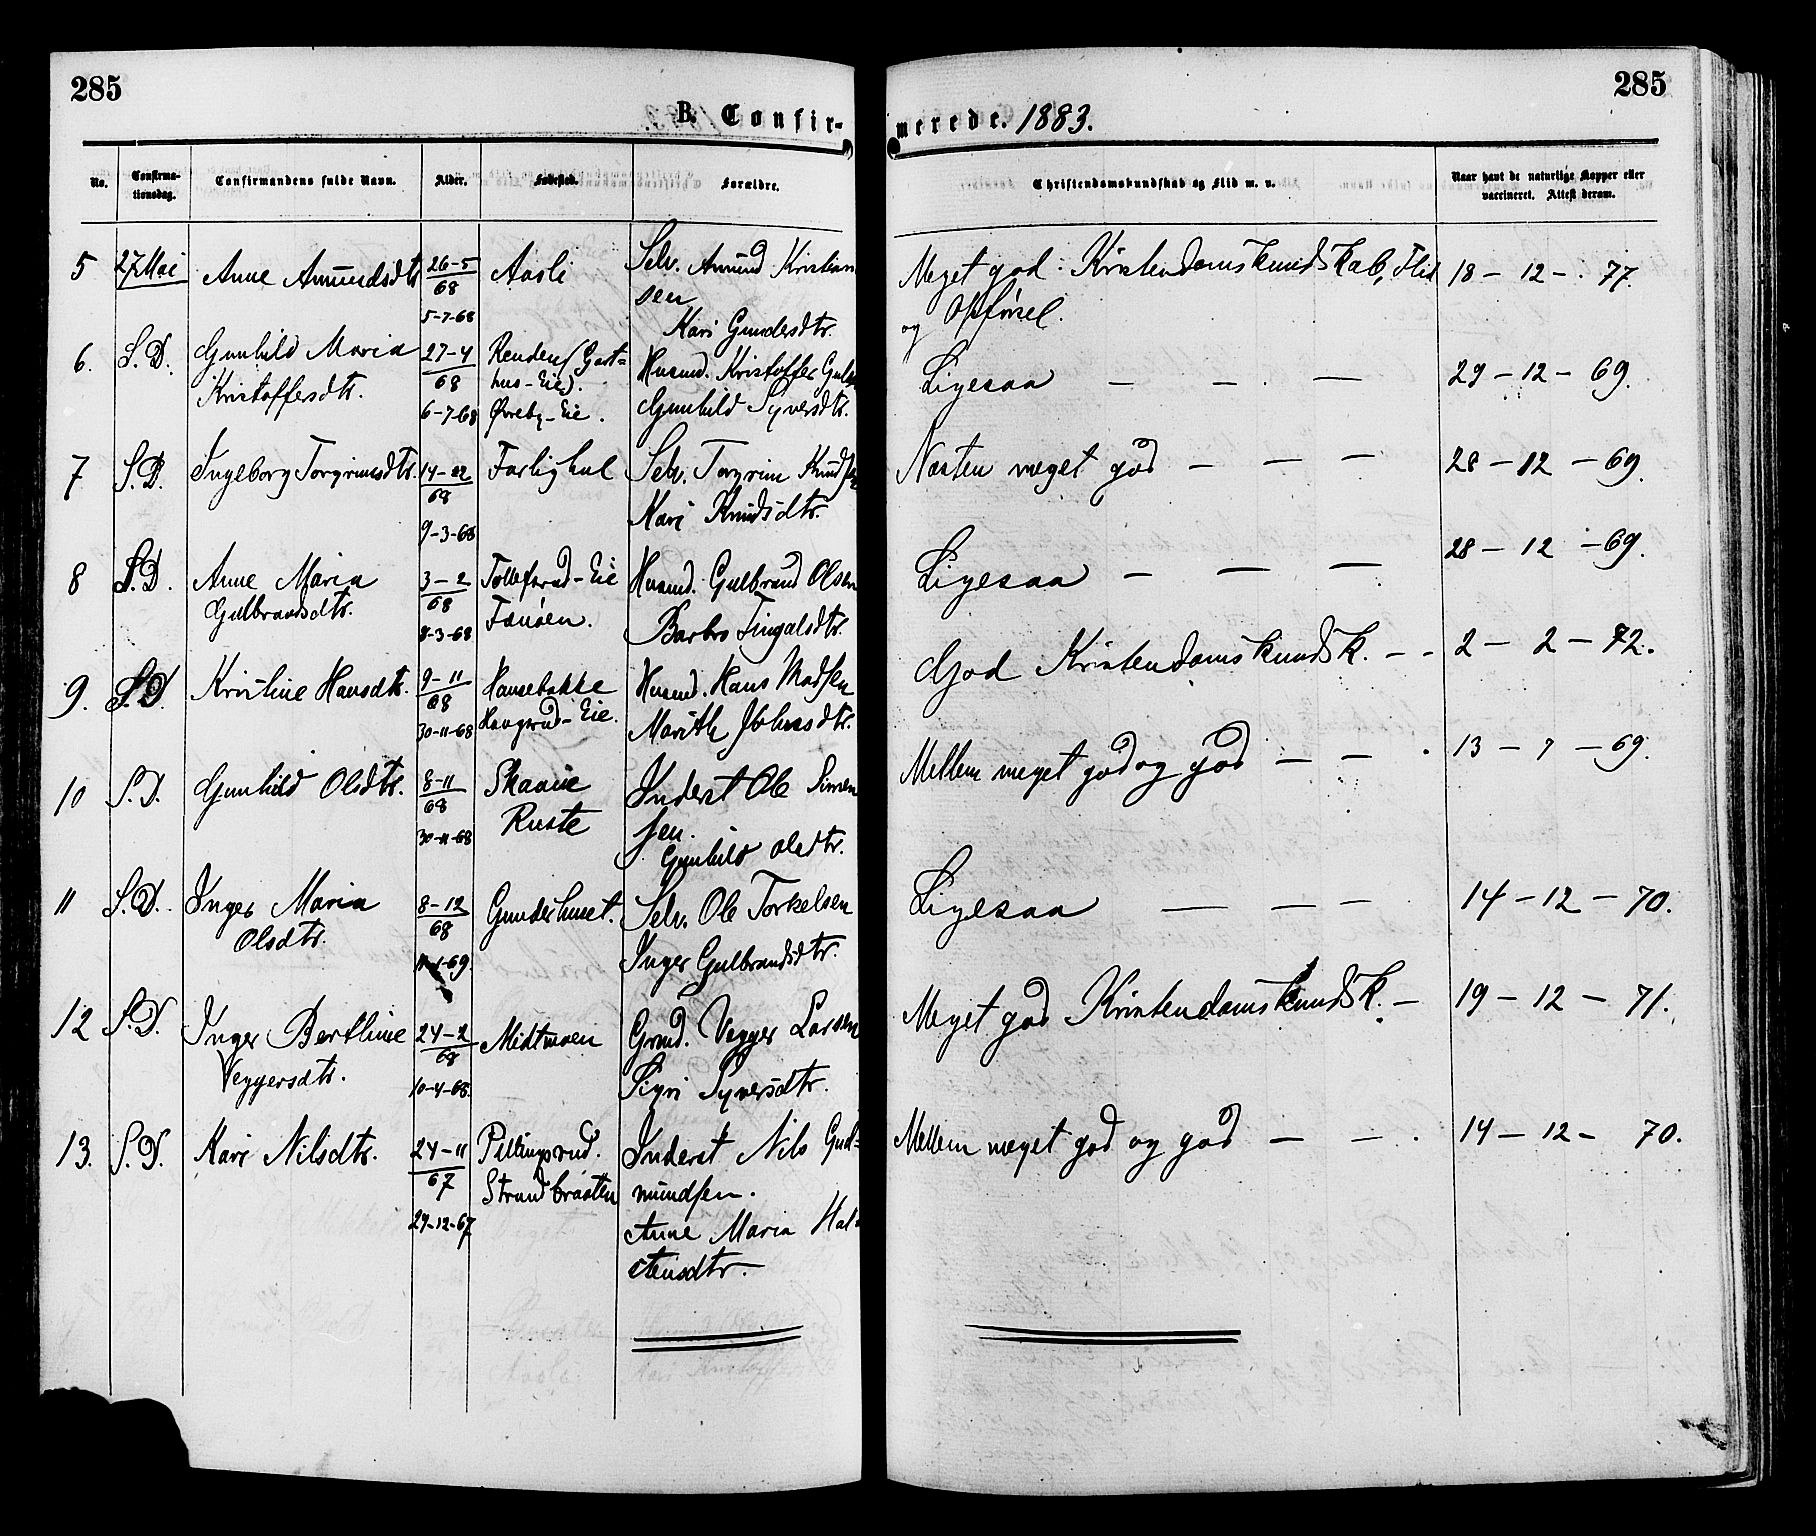 285
285
B. Confir-
merede. 1883.
No.
Confirma-
tionsdag.
Confirmandens fulde Navn.
Alder.
Fødested.
Forældre.
Christendomskundskab og Flid m. v.
Naar havt de naturlige Kopper eller
vaccineret. Attest derom.
5 27 Mai Anne Amundsdtr 26-5 Aasli Selv. Amund Kristian
68 sen
5-7-68 Kari Gundersdtr.
Meget god: Kristendomskundskab, Flid 18 - 12 - 77.
og Opførsel.
6. S.D. Gunhild Maria 27-4 Renden (Gart- Husmd. Kristoffer
Kristoffersdtr. 68 hus-Eie). Gunhild Syversdtr.
6-7-68 Øvreby-Eie.
Ligesaa — — — 29 - 12 - 69.
7 S.D. Ingeborg Torgrimsdtr. Selv. Torgrim Knudsen
68 Kari Knudsdtr.
9-3-68
Næsten meget god — — — 28 - 12 - 69.
8 S.D. Anne Maria 3-2 Tollefsrud-Eie Husmd. Gulbrand Olsen
Gulbrandsdtr. 68 Barbro Tingalsdtr.
8-3-68
Ligesaa — — — 28 - 12 - 69.
9. S.D. Kristine Hansdtr. 9-11 Hansebakke Husmd. Hans Madsen
68 Haugsrud-Eie. Marith Johnsdtr.
30-11-68
God Kristendomskundsk. - - 2 - 2 - 72.
10 S.D. Gunhild Olsdtr. 8-11 Inderst Ole Simen
68 Ruste sen.
30-11-68 Gunhild Olsdtr.
Mellem meget god og god — — 13 - 7 - 69.
11 S.D. Inger Maria 8-12 Gunderhuset. Selv. Ole Torkelsen
Olsdtr. 68 Inger Gulbrandsdtr.
11-1-69.
Ligesaa — — — 14 - 12 - 70.
12 S.D. Inger Bertline 24-2 Midtmoen Grmd. Vegger Larsen
Veggersdtr. 68 Sigri Syversdtr.
10-4-68.
Meget god Kristendomskundsk. - 19 - 12 - 71.
13. S.D. Kari Nilsdtr. 24-11 Pellingsrud. Inderst Nils Gud-
67 Strandbraaten mundsen.
29-12-67 Anne Maria Hal-
stensdtr.
Mellem meget god og god — — 14 - 12 - 70.